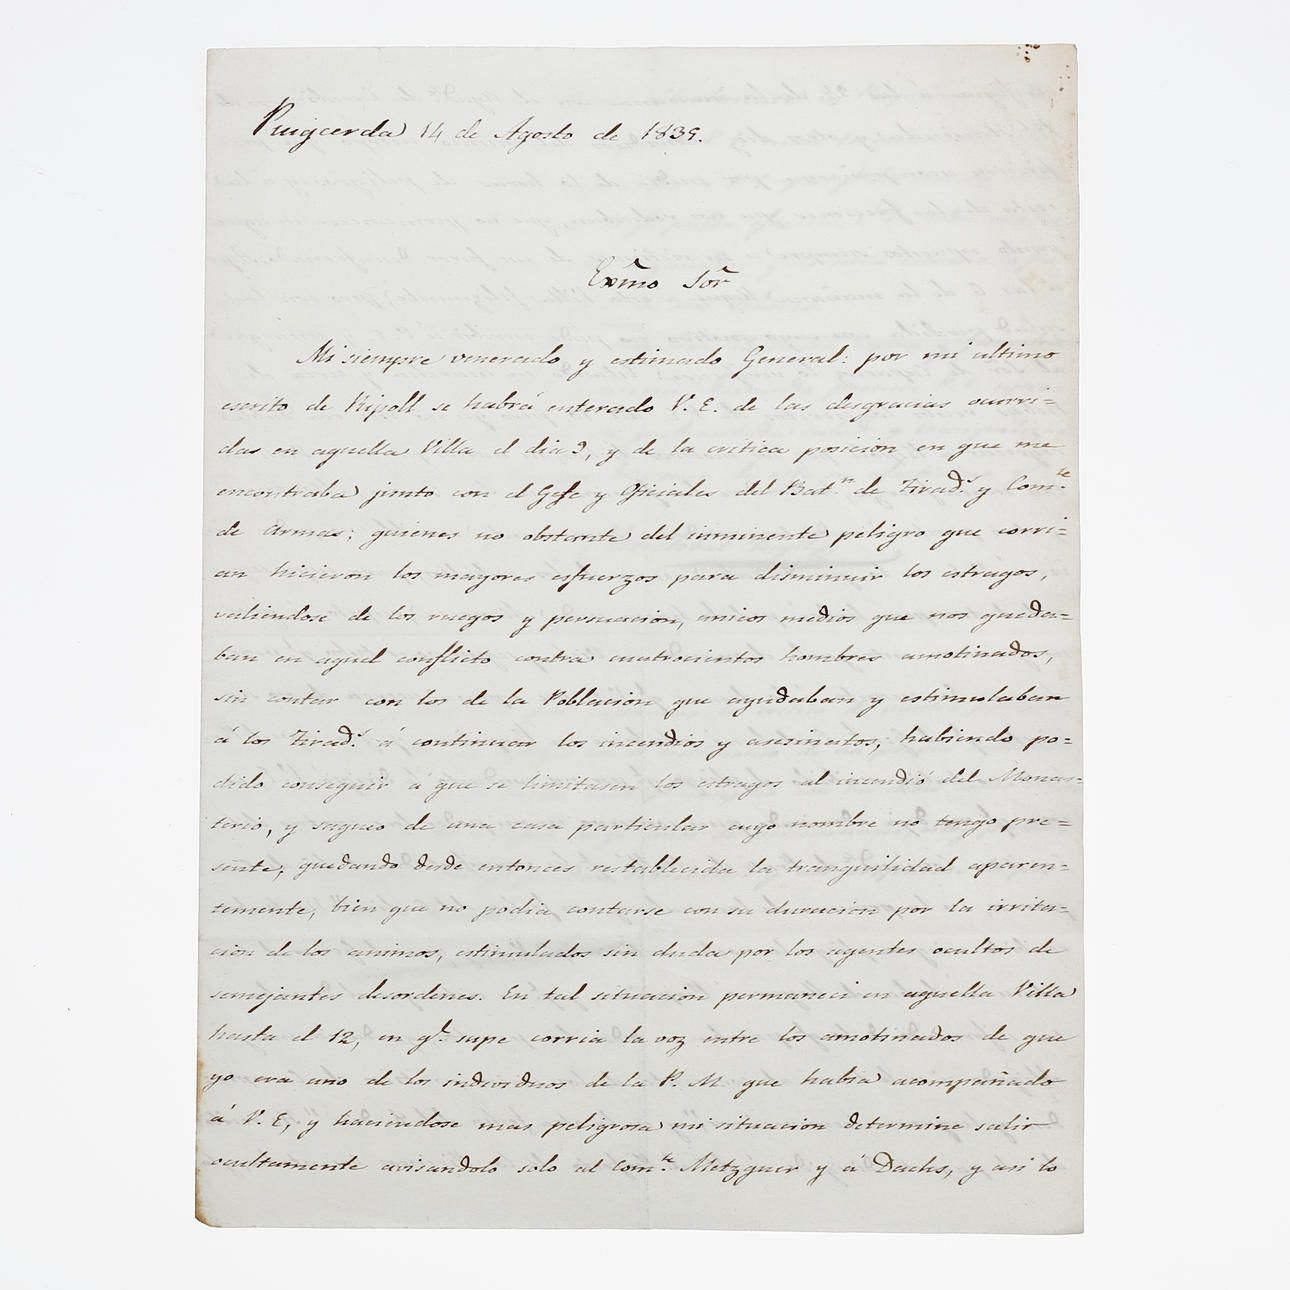 Puigcerda 14 de Agosto de 1839.
Exmo Sor
Mi siempre venerado y estimado General: por mi ultimo
escrito de Ripoll se habrá enterado V. E. de las desgracias ocurri=
das en aquella Villa el dia 9, y de la critica posición en que me
encontraba junto con el Gefe y Oficiales del Batn de Tirads y Comte
de Armas; quienes no obstante del inminente peligro que corri=
an hicieron los mayores esfuerzos para disminuir los estragos,
valiendose de los ruegos y persuacion, unicos medios que nos queda=
ban en aquel conflicto contra cuatrocientos hombres amotinados,
sin contar con los de la Poblacion que ayudaban y estimulaban
á los Tirads á continuar los incendios y asesinatos; habiendo po=
dido conseguir á que se limitasen los estragos al incendió del Monas=
terio, y saqueo de una casa particular cuyo nombre no tengo pre=
sente, quedando desde entonces restablecida la tranquilidad aparen=
temente, bien que no podia contarse con su duracion por la irrita=
cion de los animos, estimulados sin duda por los agentes ocultos de
semejantes desordenes. En tal situacion permaneci en aquella Villa
hasta el 12, en ql supe corria la voz entre los amotinados de que
yo era uno de los individuos de la P. M. que habia acompañado
á V. E, y haciendose mas peligrosa mi situacion determine salir
ocultamente avisandolo solo al Comte Metzguer y á Dachs, y asi lo